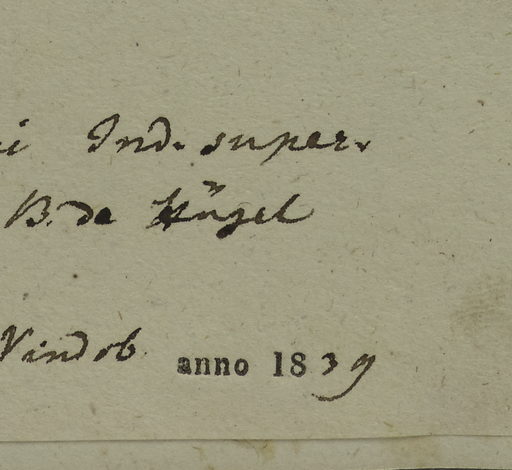 i Ind. super.
B. de Hügel
Vindob. anno 1839